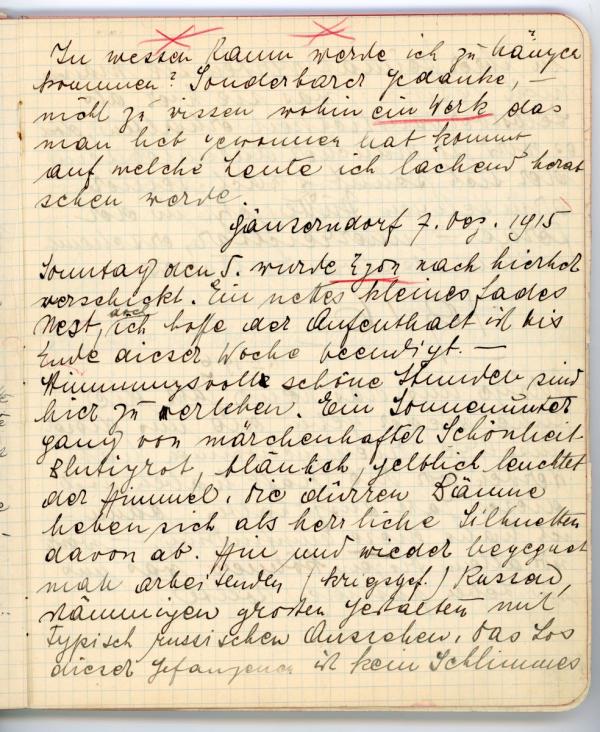 In wessen Raum werde ich zu hängen
kommen? Sonderbarer Gedanke, —
nicht zu wissen wohin ein Werk das
man lieb gewonnen hat kommt
auf welche Leute ich lächend herab
sehen werde.
Gänserndorf 7. Dez. 1915
Sonntag den 5. wurde Egon nach hierher
verschickt. Ein nettes kleines fades
Nest, doch ich hoffe der Aufenthalt ist bis
Ende dieser Woche beendigt. —
Stimmungsvolle schöne Stunden sind
hier zu verleben. Ein Sonnenunter
gang von märchenhafter Schönheit
Blutigrot, bläulich, gelblich leuchtet
der Himmel, die dürren Bäume
heben sich als herrliche Silhuetten
davon ab. Hin und wieder begegnet
man arbeitenden (kriegsgef.) Russen,
stämmigen großen Gestalten mit
typisch russischen Aussehen, das Los
dieser Gefangenen ist kein Schlimmes